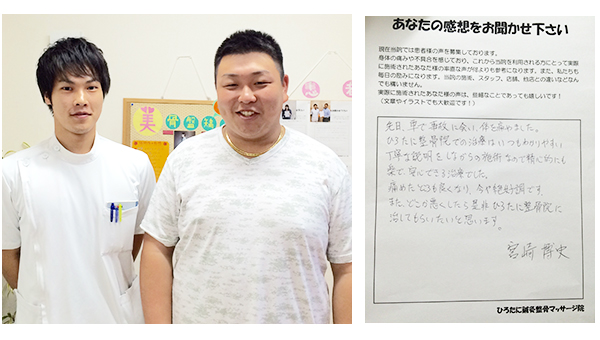 美
骨盤
あなたの感想をお聞かせ下さい
現在当院では患者様の声を募集しております。
身体の痛みや不具合を感じており、これから当院を利用される方にとって実際
に施術されたあなた様の率直な声が何よりも参考になります。また、私たちも
毎日の励みになります。当院の施術、スタッフ、設備、他店との違いなどなん
でも構いません。
実際に施術されたあなた様の声は、些細なことであっても嬉しいです！
（文章やイラストでも大歓迎です！）
先日、車で事故に会い、体を痛めました。
ひろたに整骨院での治療はいつもわかりやすい
丁寧な説明をしながらの施術なので精神的にも
楽で、安心できる治療でした。
痛めたところも良くなり、今や絶好調です。
また、どこか悪くしたら是非ひろたに整骨院に
治してもらいたいと思います。
宮崎 博史
ひろたに鍼灸整骨マッサージ院